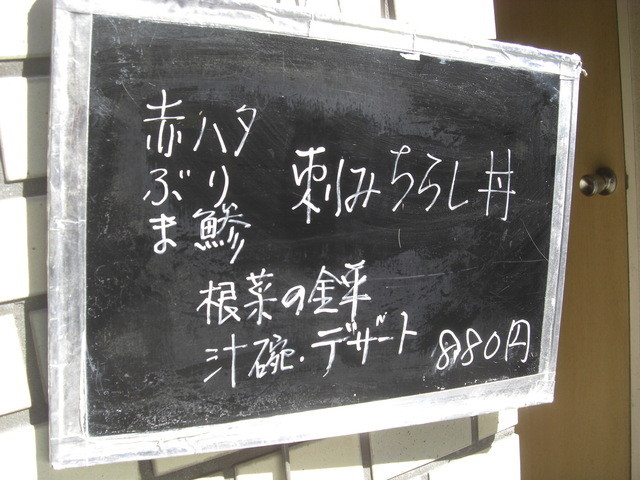 赤ハタ
ぶり
ま鯵
刺みちらし丼
根菜の金平
汁碗・デザート 880円